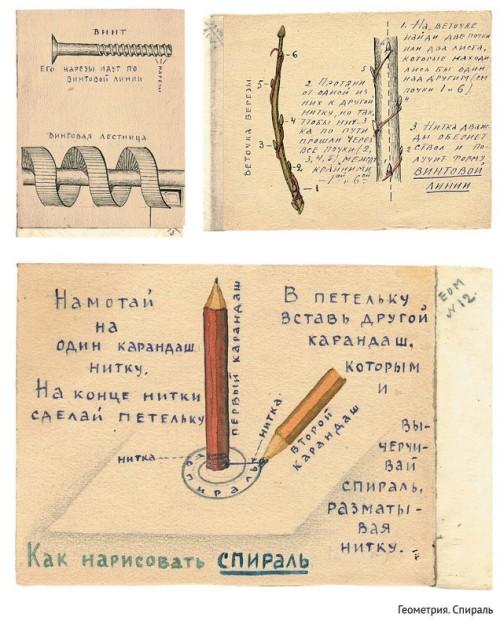 ВИНТ
ЕГО НАРЕЗЫ ИДУТ ПО
ВИНТОВОЙ ЛИНИИ
НАРЕЗЫ
ВИНТОВАЯ ЛЕСТНИЦА
ВЕТОЧКА БЕРЕЗЫ
6
5
4
3
2
1
1. НА ВЕТОЧКЕ
НАЙДИ ДВЕ ПОЧКИ
ИЛИ ДВА ЛИСТА,
КОТОРЫЕ НАХОДИ-
ЛИСЬ БЫ ОДИН
НАД ДРУГИМ (СМ
ПОЧКИ 1 и 6)
2. ПРОТЯНИ
ОТ ОДНОЙ ИЗ
НИХ К ДРУГОЙ
НИТКУ, НО ТАК,
ЧТОБЫ НИТ-
КА ПО ПУТИ
ПРОШЛА ЧЕРЕЗ
ВСЕ ПОЧКИ (2,
3, 4, 5) МЕЖДУ
КРАЙНИМИ
1ОЙ и 6ОЙ
3. НИТКА ДВАЖ-
ДЫ ОБЕРНЕТ
СТВОЛ И ПО-
ЛУЧИТ ФОРМУ
ВИНТОВОЙ
ЛИНИИ
Намотай
на
один карандаш
нитку.
На конце нитки
сделай петельку
первый карандаш
В петельку
вставь другой
карандаш,
которым
и
вы-
черчи-
вай
спираль,
разматы-
вая
нитку.
нитка
нитка
второй
карандаш
спираль
Как нарисовать СПИРАЛЬ
ЕДМ
N 12.
Геометрия. Спираль